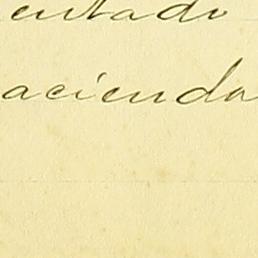 entado
acienda